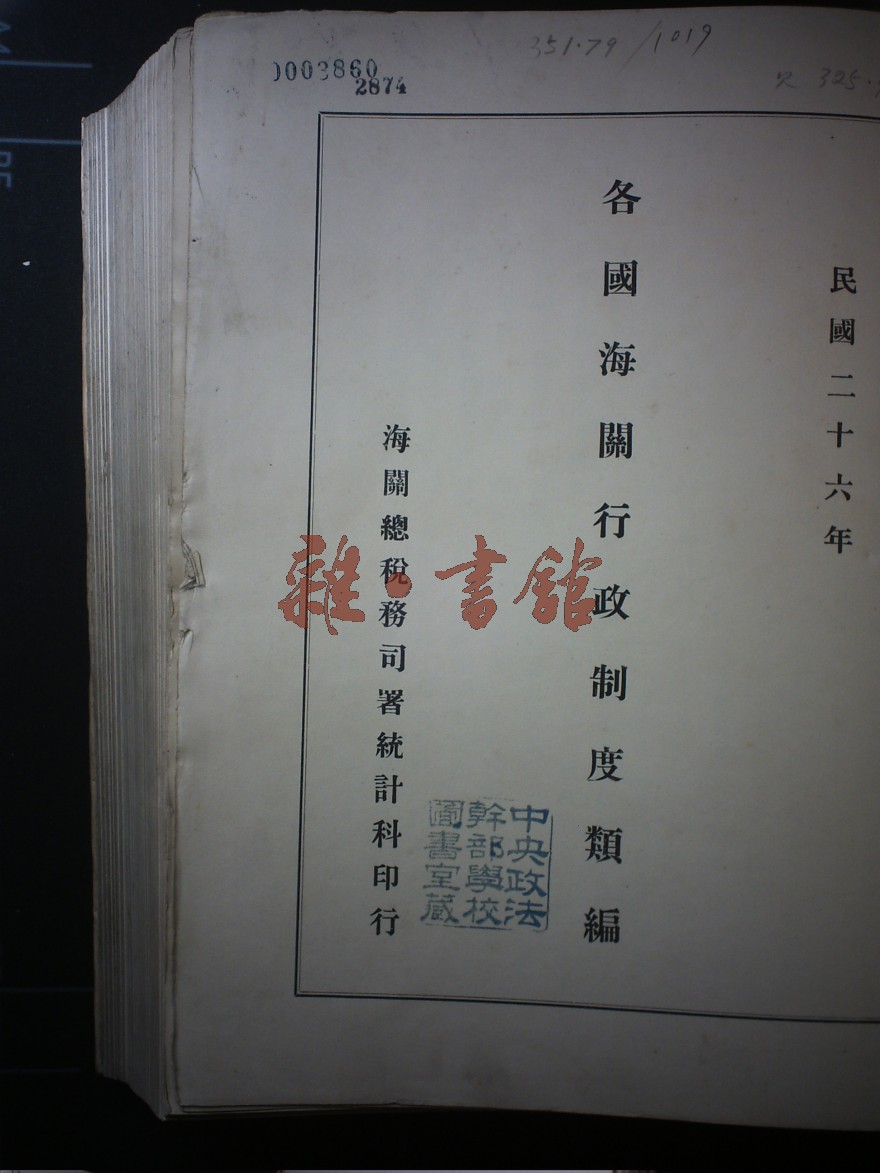 0003860
2874
351.79 /1019
325.
民國二十六年
各國海關行政制度類編
海關總稅務司署統計科印行
中央政法
幹部學校
圖書室藏
雜·書館